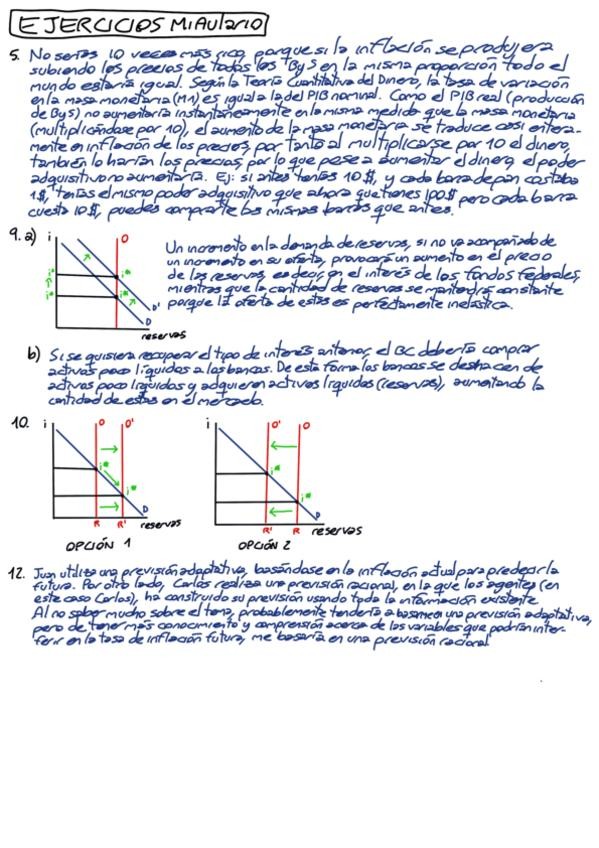 EJERCICIOS MiAulario
5. No serías 10 veces más rico, porque si la inflación se produjera
subiendo los precios de todos los ByS en la misma proporción todo el
mundo estaría igual. Según la Teoría Cuantitativa del Dinero, la tasa de variación
en la masa monetaria (M1) es igual a la del PIB nominal. Como el PIB real (producción
de ByS) no aumentaría instantáneamente en la misma medida que la masa monetaria
(multiplicándose por 10), el aumento de la masa monetaria se traduce casi entera-
mente en inflación de los precios, por tanto al multiplicarse por 10 el dinero,
también lo harían los precios, por lo que pese a aumentar el dinero, el poder
adquisitivo no aumentaría. Ej: si antes tenías 10$, y cada barra de pan costaba
1$, tenías el mismo poder adquisitivo que ahora que tienes 100$ pero cada barra
cuesta 10$, puedes comprarte las mismas barras que antes.
9. a)
i
O
i*
i*
i*
i*
D'
D
reservas
Un incremento en la demanda de reservas, si no va acompañado de
un incremento en su oferta, provocará un aumento en el precio
de las reservas, es decir, en el interés de los fondos federales,
mientras que la cantidad de reservas se mantendrá constante
porque la oferta de estas es perfectamente inelástica.
b) Si se quisiera recuperar el tipo de interés anterior, el BC debería comprar
activos poco líquidos a los bancos. De esta forma los bancos se deshacen de
activos poco líquidos y adquieren activos líquidos (reservas), aumentando la
cantidad de estas en el mercado.
10.
i
O
O'
i*
i*
D
R
R'
reservas
OPCIÓN 1
i
O'
O
i*
i*
D
R'
R
reservas
OPCIÓN 2
12. Juan utiliza una previsión adaptativa, basándose en la inflación actual para predecir la
futura. Por otro lado, Carlos realiza una previsión racional, en la que los agentes (en
este caso Carlos), ha construido su previsión usando toda la información existente.
Al no saber mucho sobre el tema, probablemente tendería a basarme en una previsión adaptativa,
pero de tener más conocimiento y comprensión acerca de las variables que podrían inter-
ferir en la tasa de inflación futura, me basaría en una previsión racional